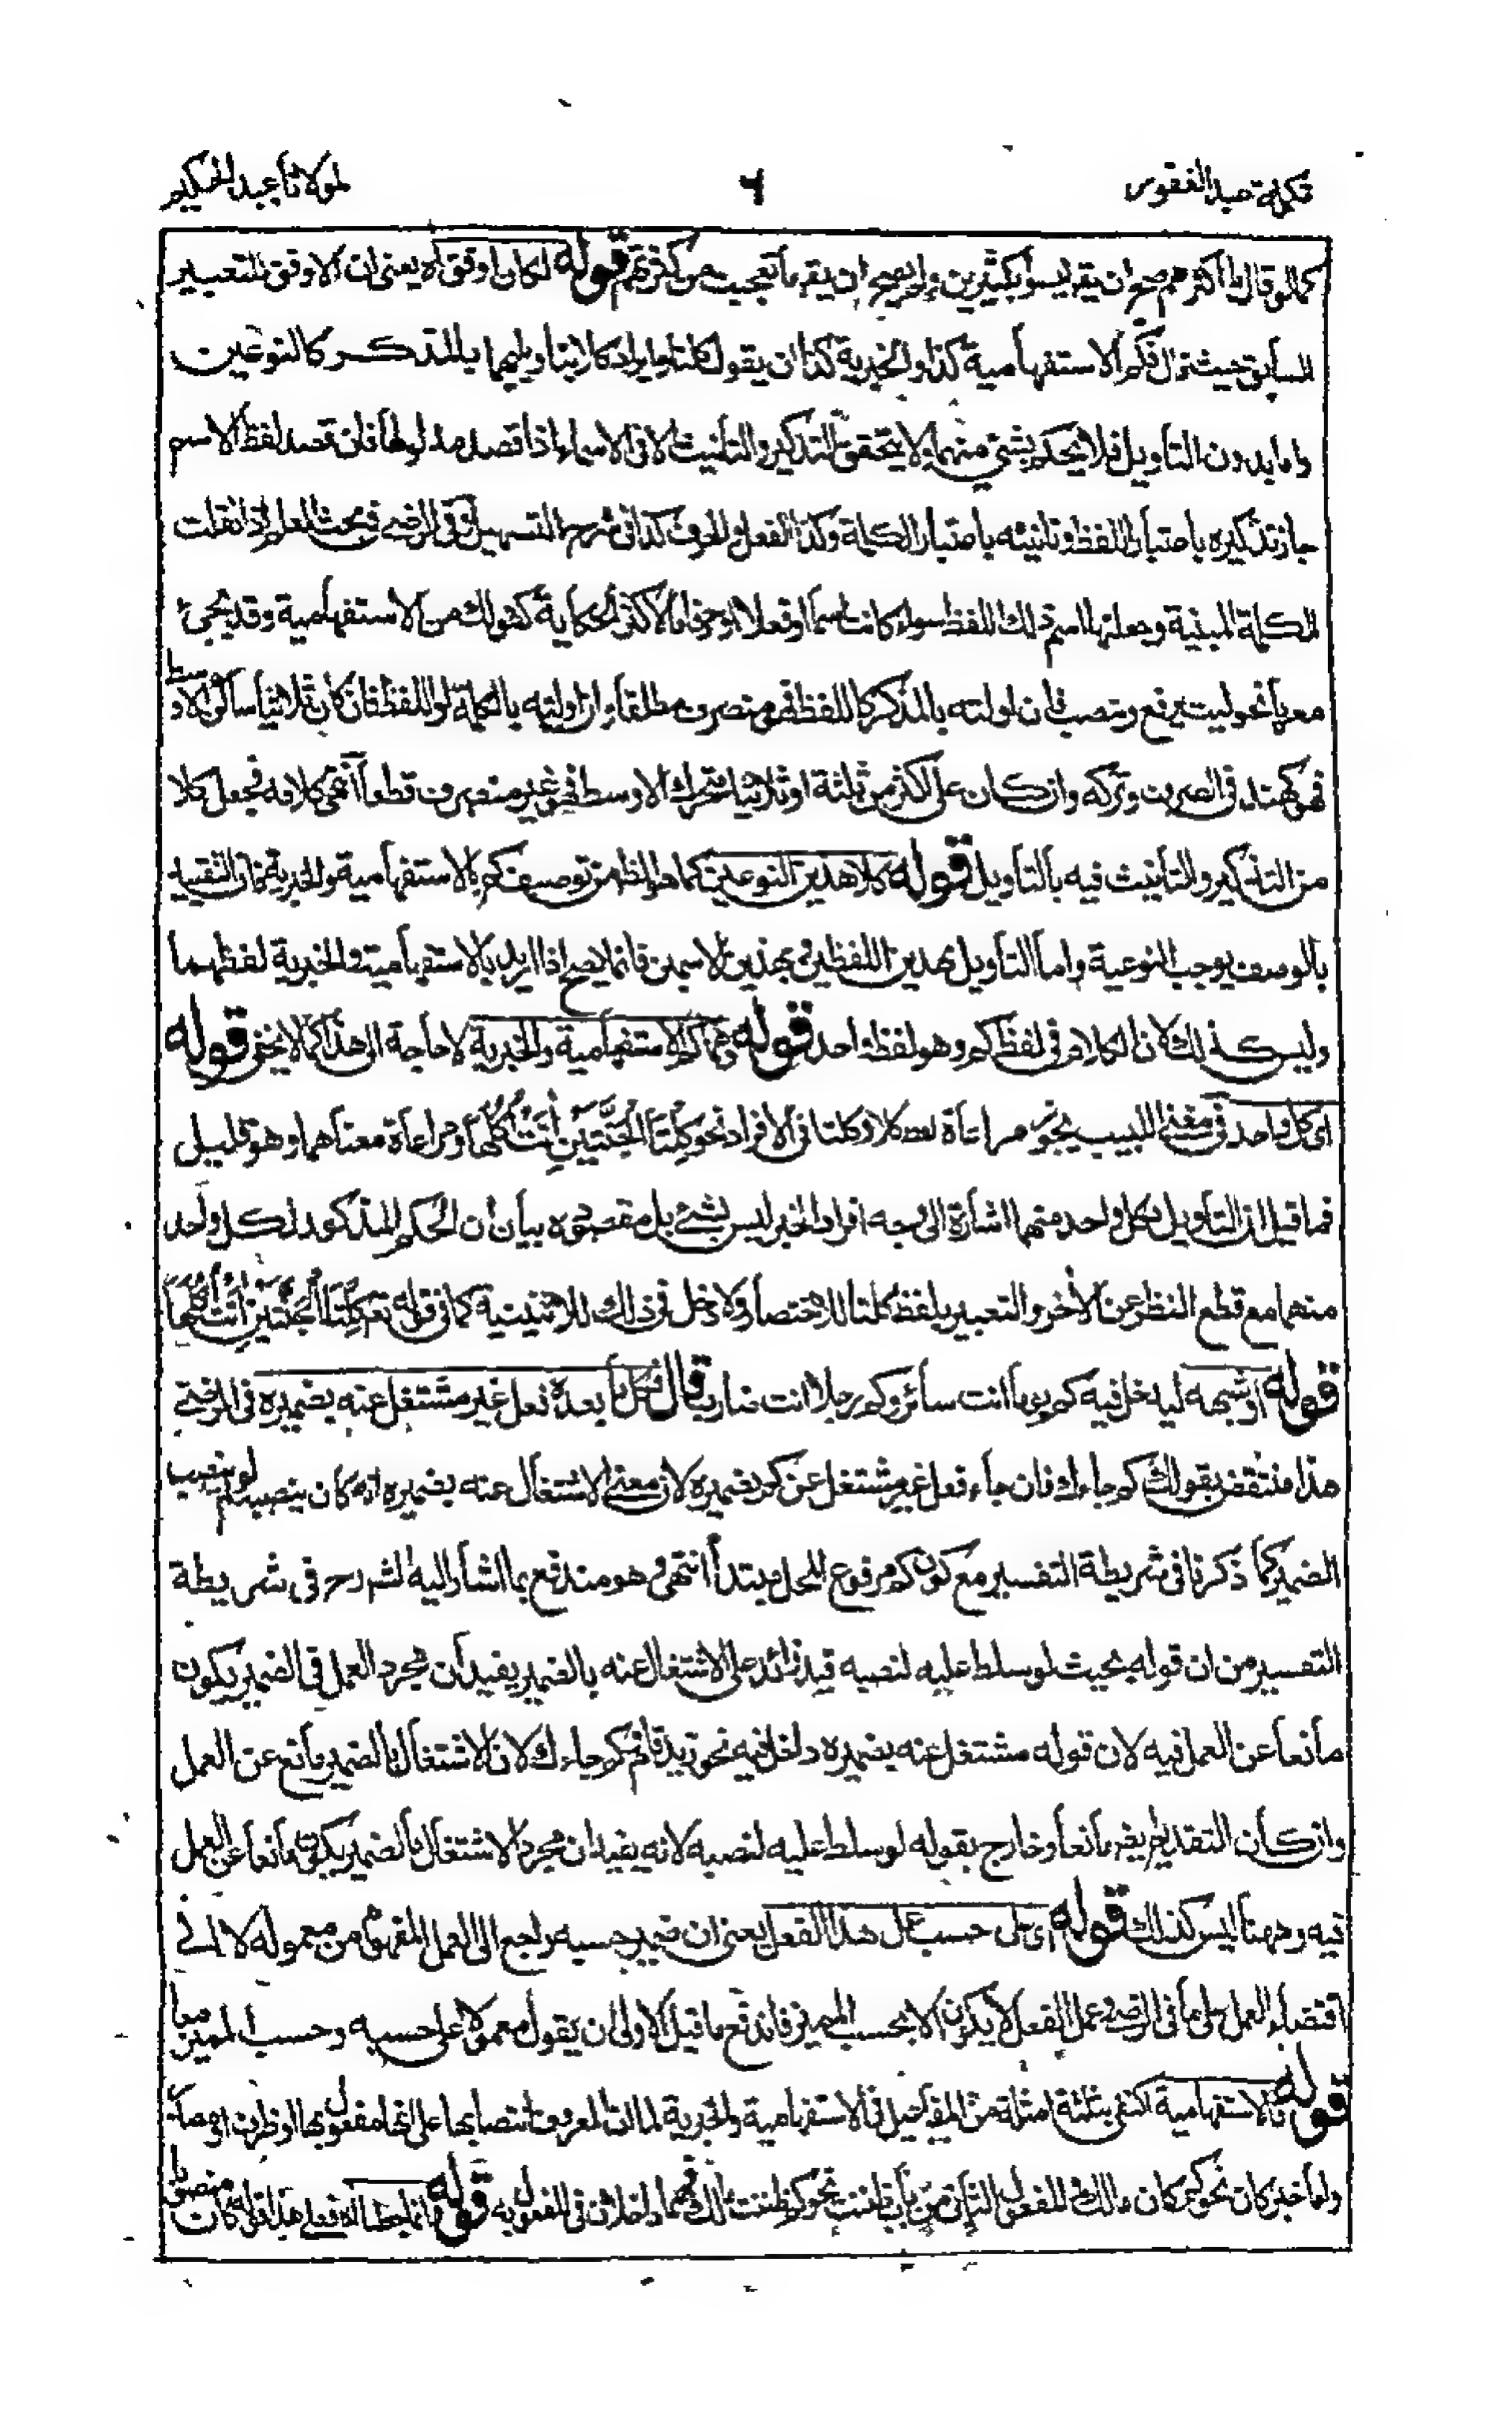 تكملة عبد الغفور
٦
لمولانا عبد الحكيم
كما لو قال ما أكثرهم صح ان يقر ليسوا بكثيرين ولم يصح ان يقر ما تعجبت من كثرتهم قوله لكان اوفق اه يعنى ان الاوفق للتعبير
السابق حيث قال فكم الاستفهامية كذا والخبرية كذا ان يقول كلتا وايراد كلا بتاويلهما بالمذكر كالنوعين
واما بدون التأويل فلا يحكم بشئ منهما ولا يتحقق التذكير والتأنيث الا فى الاسماء اذا قصد مدلولها فان قصد لفظ الاسم
جاز تذكيره باعتبار اللفظ وتانيثه باعتبار الكلمة وكذا الفعل والحرف كذا فى شرح التسهيل وفى الرضى فى بحث العلم اذا نقلت
الكلمة المبنية وجعلتها اسم ذلك اللفظ سواء كانت اسما او فعلا او حرفا فالاكثر الحكاية كقولك من الاستفهامية وقد يجئ
معربا نحو ليت يرفع وينصب فان اولته بالمذكر كاللفظ فهو منصرف مطلقا وان اولته بالكلمة او اللفظة فان كان ثلاثيا ساكن الاوسط
فهو كهند فى الصرف وتركه وان كان على اكثر من ثلثة او ثلاثيا متحرك الاوسط فهو غير منصرف قطعا انتهى كلامه فجعل كلا
من التذكير والتأنيث فيه بالتأويل قوله كلا هذين النوعين كما هو الظاهر من توصيف كم بالاستفهامية والخبرية فان التقييد
بالوصف يوجب النوعية واما التأويل بهذين اللفظين او بهذين الاسمين فانما يصح اذا اريد بالاستفهامية والخبرية لفظهما
وليس كذلك لان الكلام فى لفظ كم وهو لفظ واحد قوله وهما كم الاستفهامية والخبرية لا حاجة الى هذا كما لا يخفى قوله
اى كل واحد فى مغنى اللبيب يجوز مراعاة لفظ كلا وكلتا فى الافراد نحو كِلْتَا الْجَنَّتَيْنِ آتَتْ أُكُلَهَا ومراعاة معناهما وهو قليل
فما قيل ان التأويل بكل واحد منهما اشارة الى وجه افراد الخبر ليس بشئ بل مقصوده بيان ان الحكم المذكور لكل واحد
منهما مع قطع النظر عن الاخر والتعبير بلفظ كلتا للاختصار ولا دخل فى ذلك للاثنينية كما فى قوله تع كِلْتَا الْجَنَّتَيْنِ آتَتْ أُكُلَهَا
قوله او شبهه ليدخل فيه كم يوما انت سائر وكم رجلا انت ضارب قال كل ما بعده فعل غير مشتغل عنه بضميره فى الرضى
هذا منتقض بقولك كم جاءك فان جاء فعل غير مشتغل عن كم بضميره لان معنى الاشتغال عنه بضميره انه كان ينصبه لو لم ينصب
الضمير كما ذكرنا فى شريطة التفسير مع كون كم مرفوع المحل مبتدأ انتهى وهو مندفع بما اشار اليه الشرح فى شريطة
التفسير من ان قوله بحيث لو سلط عليه لنصبه قيد زائد على الاشتغال عنه بالضمير يفيد ان مجرد العمل فى الضمير يكون
مانعا عن العمل فيه لان قوله مشتغل عنه بضميره داخل فيه نحو زيد قائم وكم جاءك لان الاشتغال بالضمير مانع عن العمل
وان كان التقديم ايضا مانعا وخارج بقوله لو سلط عليه لنصبه لانه يفيد ان مجرد الاشتغال بالضمير يكون مانعا عن العمل
فيه وههنا ليس كذلك قوله اى على حسب عمل هذا الفعل يعنى ان ضمير حسبه راجع الى العمل المفهوم من معموله لا الى
اقتضاء العمل على ما فى الرضى وعمل الفعل لا يكون الا بحسب المميز فاندفع ما قيل الاولى ان يقول معمولا على حسبه وحسب المميز معا
قوله فالاستفهامية اكتفى بثلثة امثلة من المفاعيل فى الاستفهامية والخبرية لما ان المعروف انتصابها على انها مفعول بها او ظرف او مصدر
واما خبر كان نحو كم كان مالك والمفعول الثانى من باب ظننت نحو كم ظننت مالك فهما داخلان فى المفعول به قوله